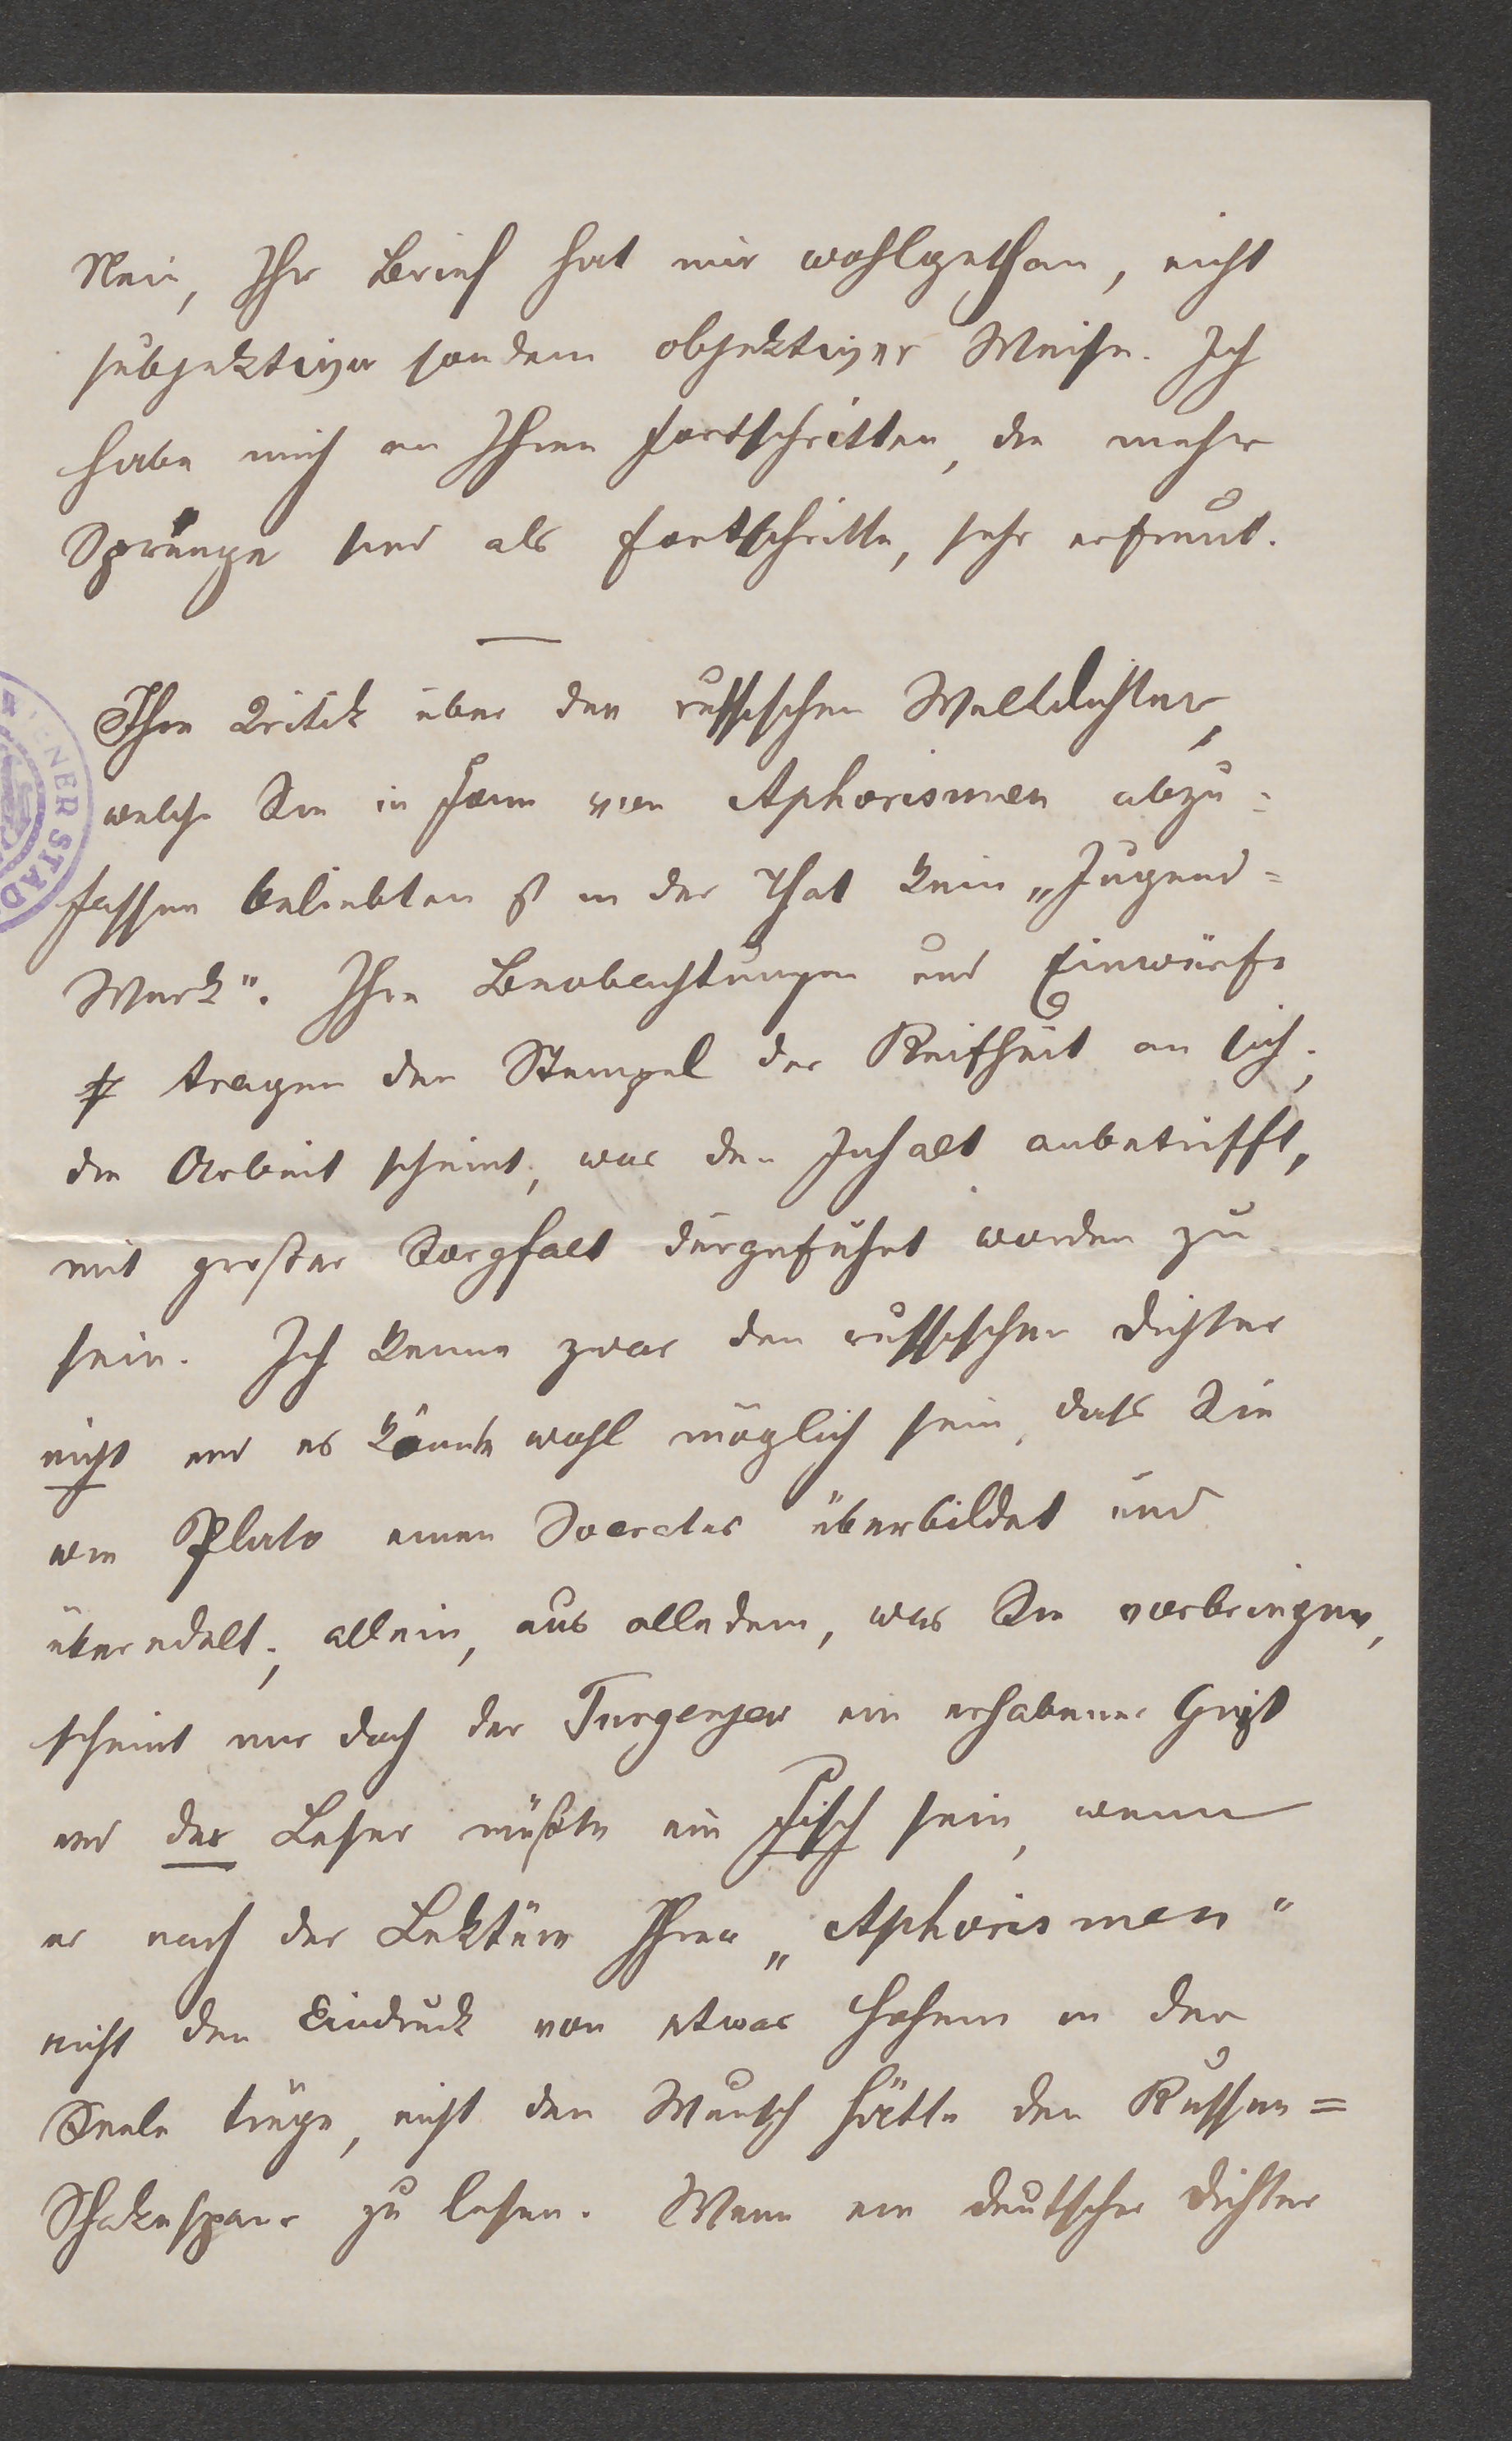 Nein, Ihr Brief hat mir wohlgethan, nicht
subjektiver sondern objektiver Weise. Ich
habe mich an Ihren Fortschritten, die mehr
Sprünge sind als Fortschritte, sehr erfreut.
—
Ihre Kritik über den russischen Weltdichter,
welche Sie in Form von Aphorismen abzu=
fassen beliebten ist in der That kein „Jugend=
Werk". Ihre Beobachtungen und Einwürfe
tragen den Stempel der Reifheit an sich;
die Arbeit scheint, was den Inhalt anbetrifft,
mit großer Sorgfalt durgeführt worden zu
sein. Ich kenne zwar den russischen Dichter
nicht und es könnte wohl möglich sein, dass Sie
wie Plato einen Socrates überbildet und
überedelt; allein, aus alledem, was Sie vorbringen,
scheint mir doch der Turgenjew ein erhabener Geist
und der Leser müßte ein Fisch sein, wenn
er nach der Lektüre Ihrer „Aphorismen"
nicht den Eindruck von etwas Hohem in der
Seele trüge, nicht den Wunsch hätte den Russen=
Shakespeare zu lesen. Wenn ein deutscher Dichter
NER STAD